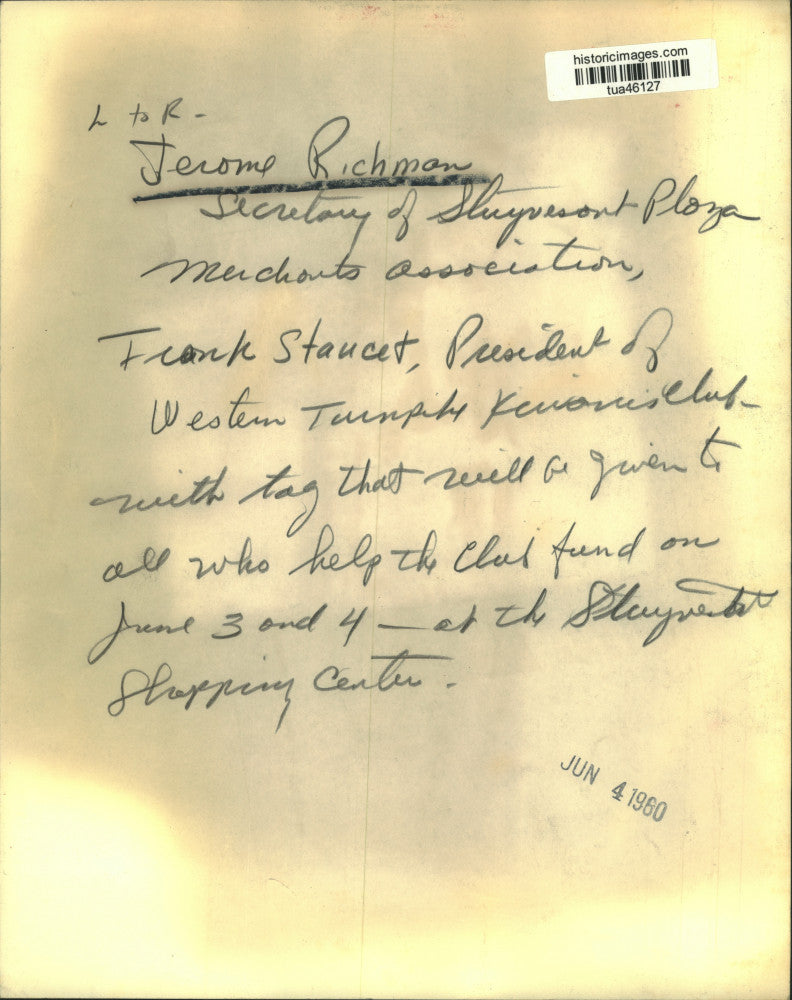 historicimages.com
tua46127
L to R -
Jerome Richman
Secretary of Stuyvesant Plaza
Merchants association,
Frank Staucet, President of
Western Turnpike Kiwanis Club -
with tag that will be given to
all who help the Club fund on
June 3 and 4 — at the Stuyvesant
Shopping Center.
JUN 4 1960